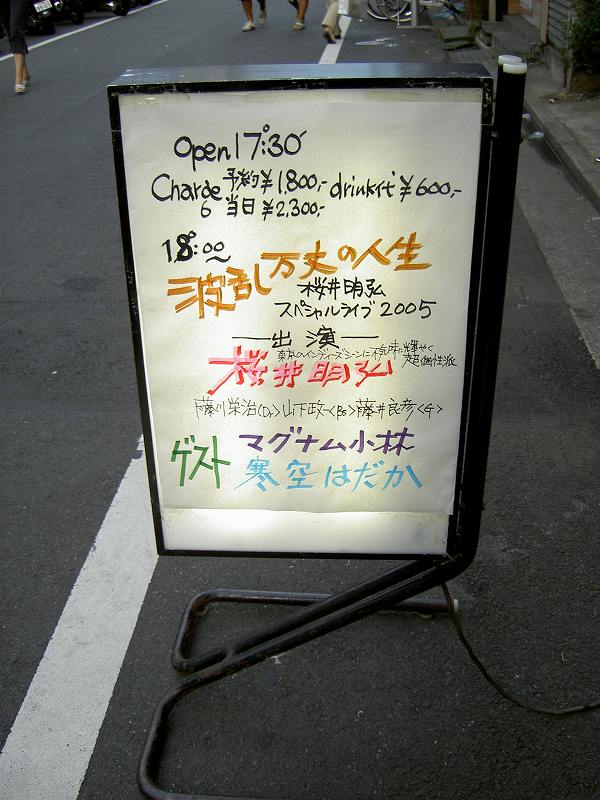 Open 17:30
Charge 予約 ¥1,800,- drink付 ¥600,-
当日 ¥2,300,-
18:00〜
波乱万丈の人生
桜井明弘
スペシャルライブ2005
—出演—
東京のインディーズシーンに不気味に輝やく
超個性派
桜井明弘
藤川栄治<Dr>山下政一<Bs>藤井良彦<G>
ゲスト マグナム小林
寒空はだか